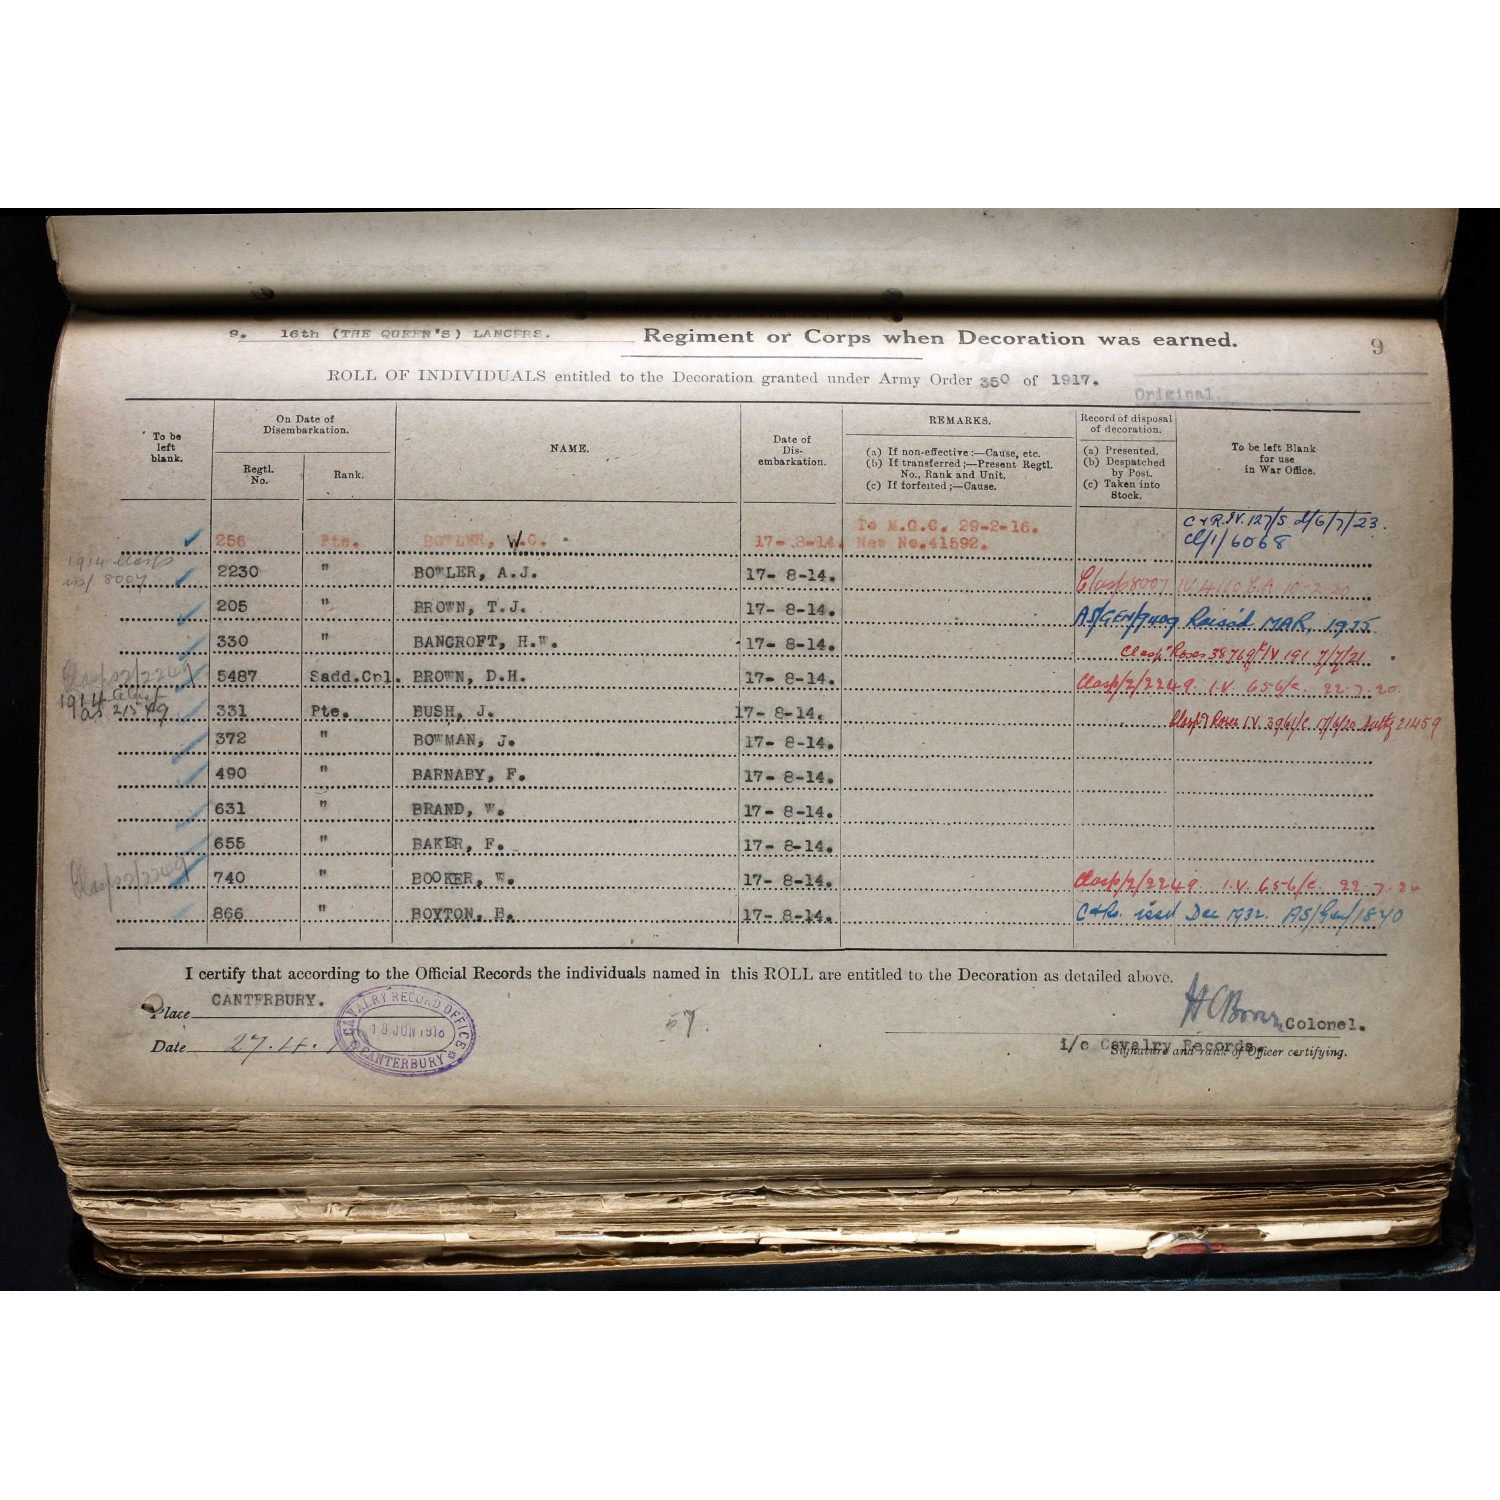 9. 16th (THE QUEEN'S) LANCERS. Regiment or Corps when Decoration was earned. 9
ROLL OF INDIVIDUALS entitled to the Decoration granted under Army Order 350 of 1917.
Original.
To be left blank.
On Date of Disembarkation.
Regtl. No.
Rank.
NAME.
Date of Disembarkation.
REMARKS.
(a) If non-effective:—Cause, etc.
(b) If transferred;—Present Regtl. No., Rank and Unit.
(c) If forfeited;—Cause.
Record of disposal of decoration.
(a) Presented.
(b) Despatched by Post.
(c) Taken into Stock.
To be left Blank for use in War Office.
256 Pte. BOWLER, W.C. 17- 8-14. To M.G.C. 29-2-16. New No.41592. C & R. IV. 127/S d/6/7/23. Cl/1/6068
1914 Clasp iss/ 8007 2230 " BOWLER, A.J. 17- 8-14. Clasp 8007 IV 4160 10-2-20
205 " BROWN, T.J. 17- 8-14. AS/GEN/9409 MAR, 1935.
330 " BANCROFT, H.W. 17- 8-14. Clasp & Roses 3876 IV 191 7/7/21
Clasps 2/2249 5487 Sadd.Cpl. BROWN, D.H. 17- 8-14. Clasp/2/2249. I.V. 656/c. 22.7.20.
1914 331 Pte. BUSH, J. 17- 8-14. Clasp & Roses IV. 21459
372 " BOWMAN, J. 17- 8-14.
490 " BARNABY, F. 17- 8-14.
631 " BRAND, W. 17- 8-14.
655 " BAKER, F. 17- 8-14.
Clasps 2/2249 740 " BOOKER, W. 17- 8-14. Clasp/2/2249. I.V. 656/c. 22.7.20
866 " BOYTON, B. 17- 8-14. C & R. issd Dec 1932. AS/Gen/1840
I certify that according to the Official Records the individuals named in this ROLL are entitled to the Decoration as detailed above.
Place CANTERBURY.
Date 27.4.1
CAVALRY RECORD OFFICE
18 JUN 1918
CANTERBURY
57.
Colonel.
i/c Cavalry Records.
Signature and rank of Officer certifying.